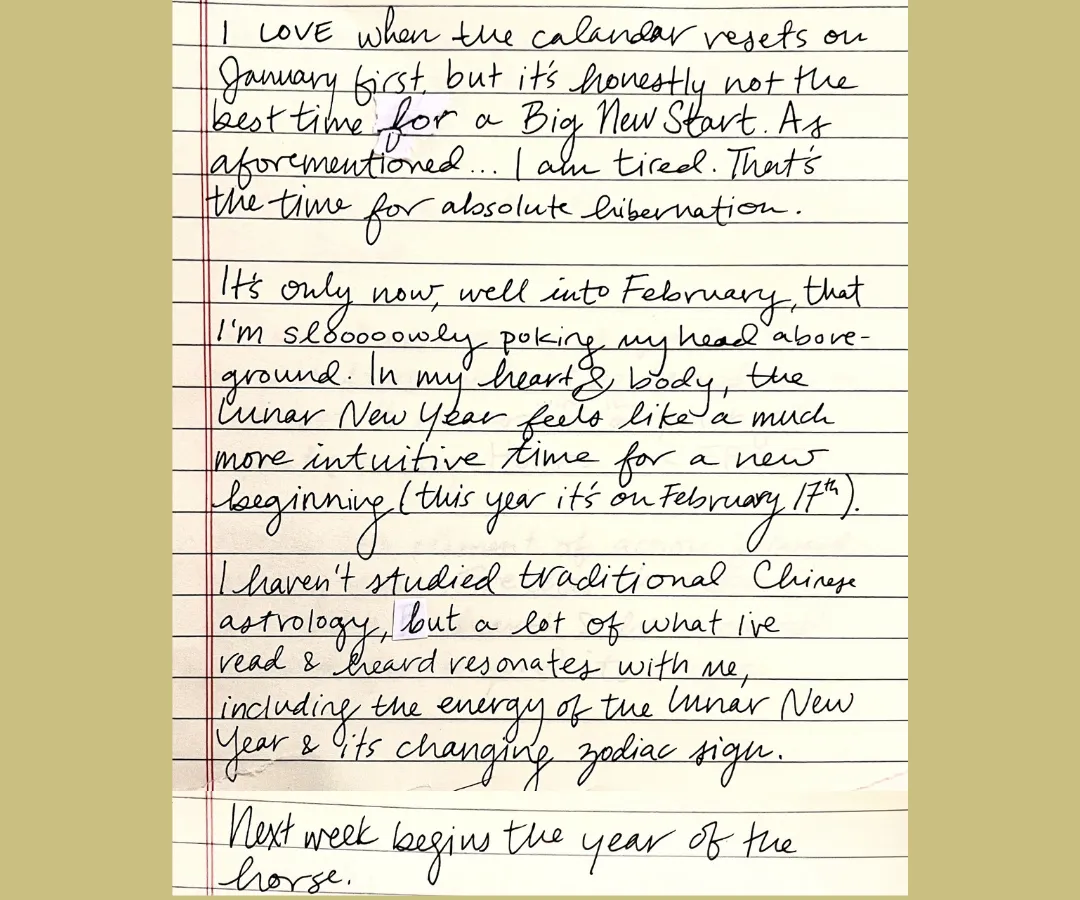 I LOVE when the calandar resets on
January first, but it's honestly not the
best time for a Big New Start. As
aforementioned... I am tired. That's
the time for absolute hibernation.
It's only now, well into February, that
I'm slooooowly poking my head above-
ground. In my heart & body, the
Lunar New Year feels like a much
more intuitive time for a new
beginning (this year it's on February 17th).
I haven't studied traditional Chinese
astrology, but a lot of what I've
read & heard resonates with me,
including the energy of the Lunar New
Year & its changing zodiac sign.
Next week begins the year of the
horse.